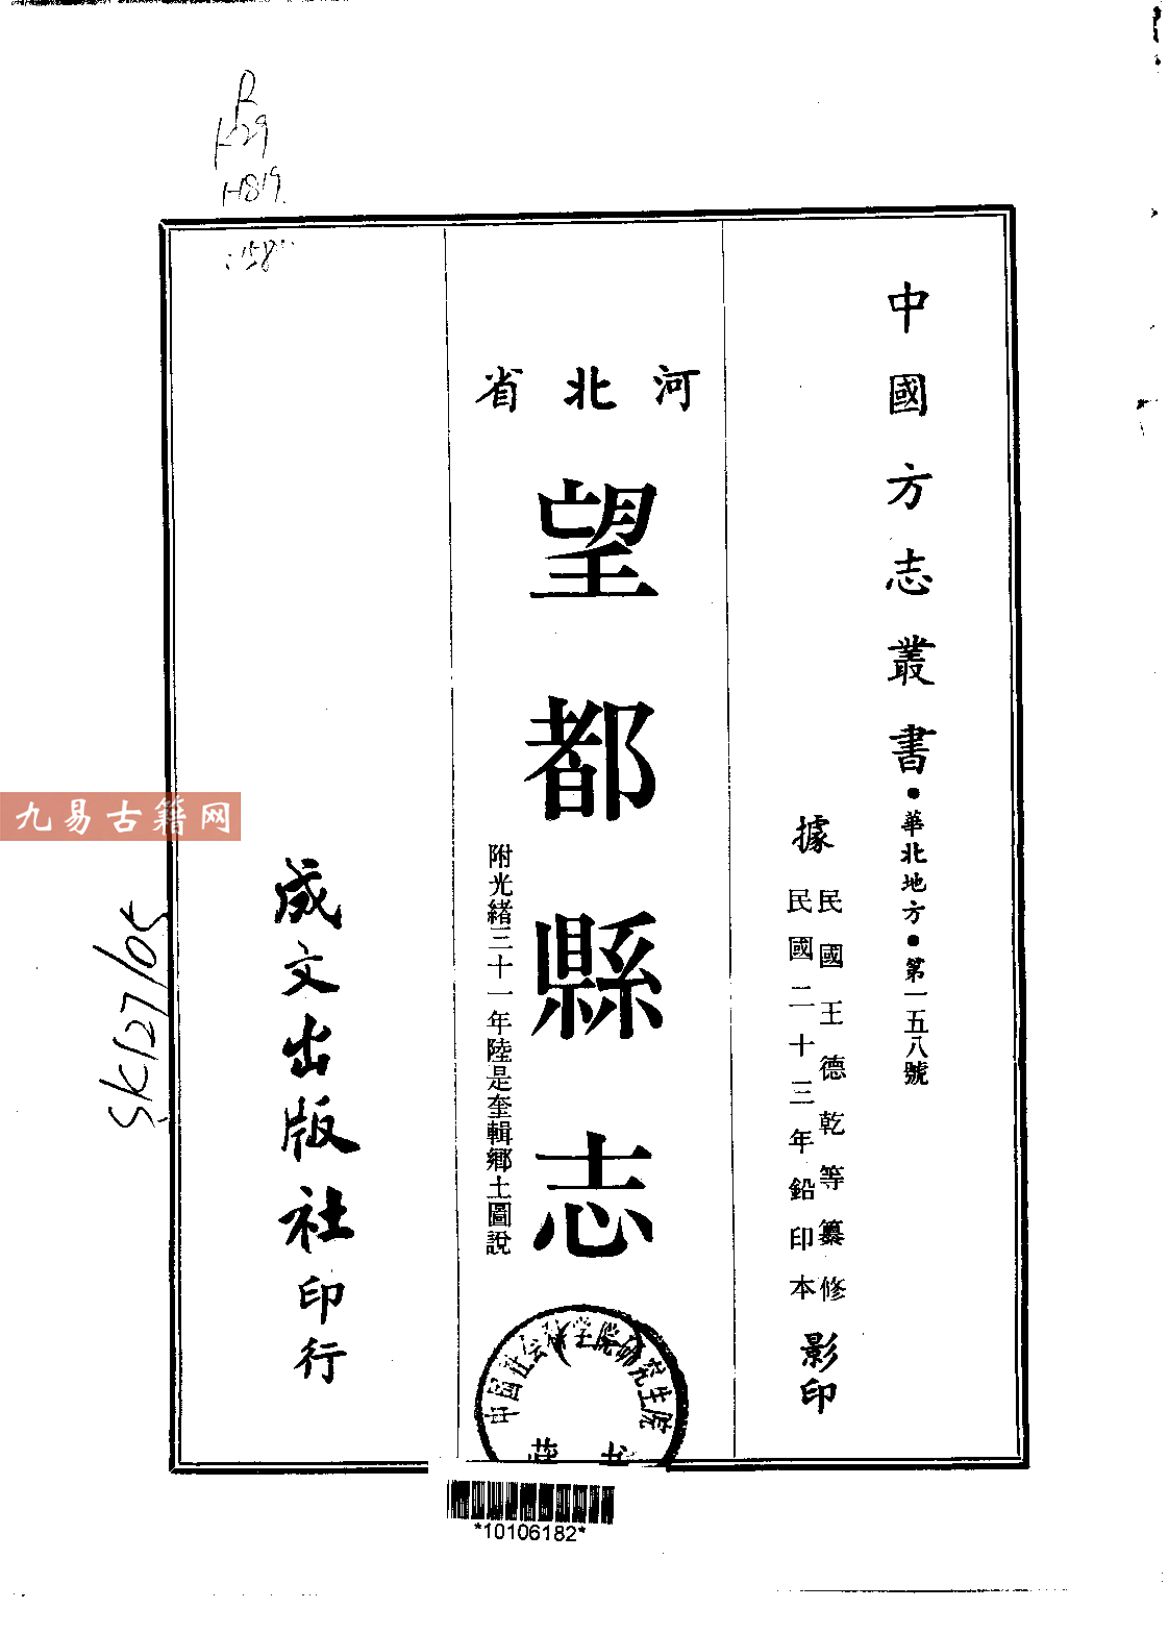 中國方志叢書・華北地方・第一五八號
據
民國王德乾等纂修
民國二十三年鉛印本
影印
河北省
望都縣志
附光緒三十一年陸是奎輯鄉土圖說
成文出版社印行
中国社会科学院研究生院
藏书
*10106182*
九易古籍网
R
K29
H819
:158
SK127/05